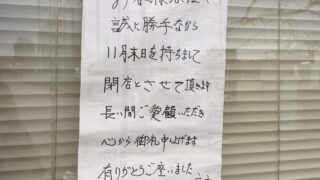 誠に勝手ながら
11月末日を持ちまして
閉店とさせて頂きます
長い間ご愛顧いただき
心から御礼申し上げます
有りがとうご座いました